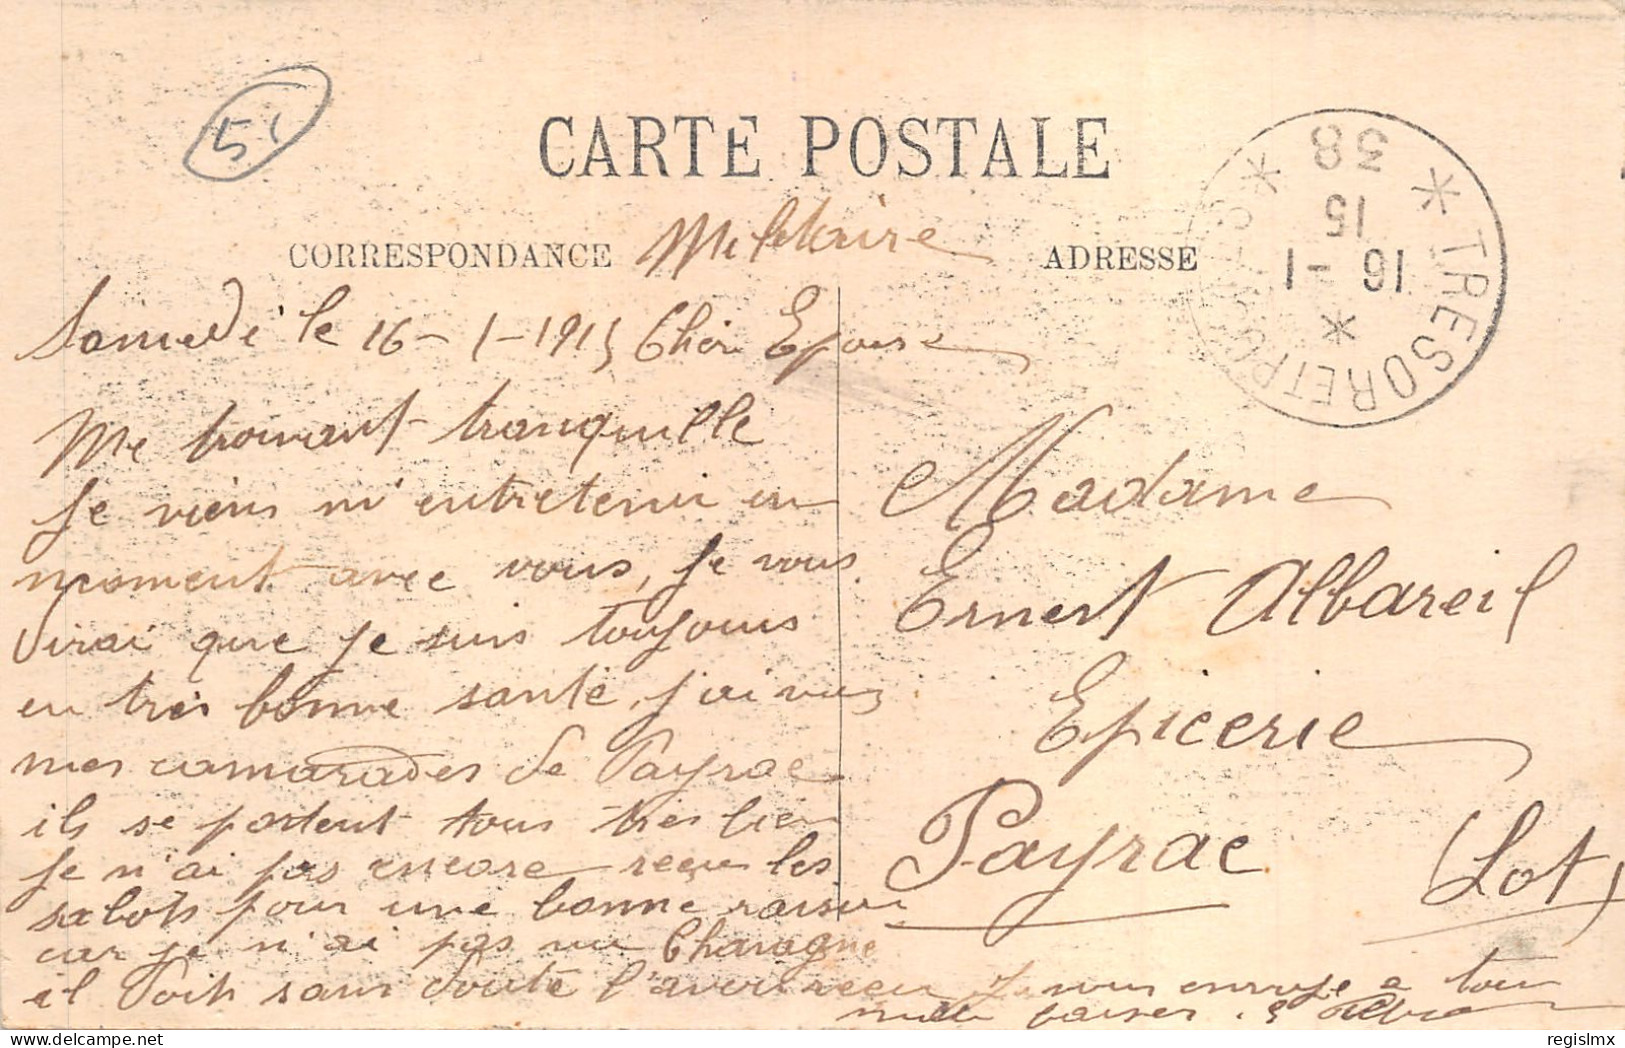 51
CARTE POSTALE
Militaire
CORRESPONDANCE
ADRESSE
TRESOR ET POSTES
38
15
16 - 1
Samedi le 16-1-1915 Cher Epouse
Me trouvant tranquille
Je viens m'entretenir un
moment avec vous, Je vous
Dirai que Je suis toujours
en très bonne santé, j'ai vus
mes camarades de Payrac
ils se portent tous très bien
Je n'ai pas encore reçu les
sabots pour une bonne raison
car je n'ai pas vu Chavagne
il Doit sans doute l'avoir reçu Je vous envoye a tous
mille baiser.
Madame
Ernest Albareil
Epicerie
Payrac
(Lot)
regislmx
delcampe.net